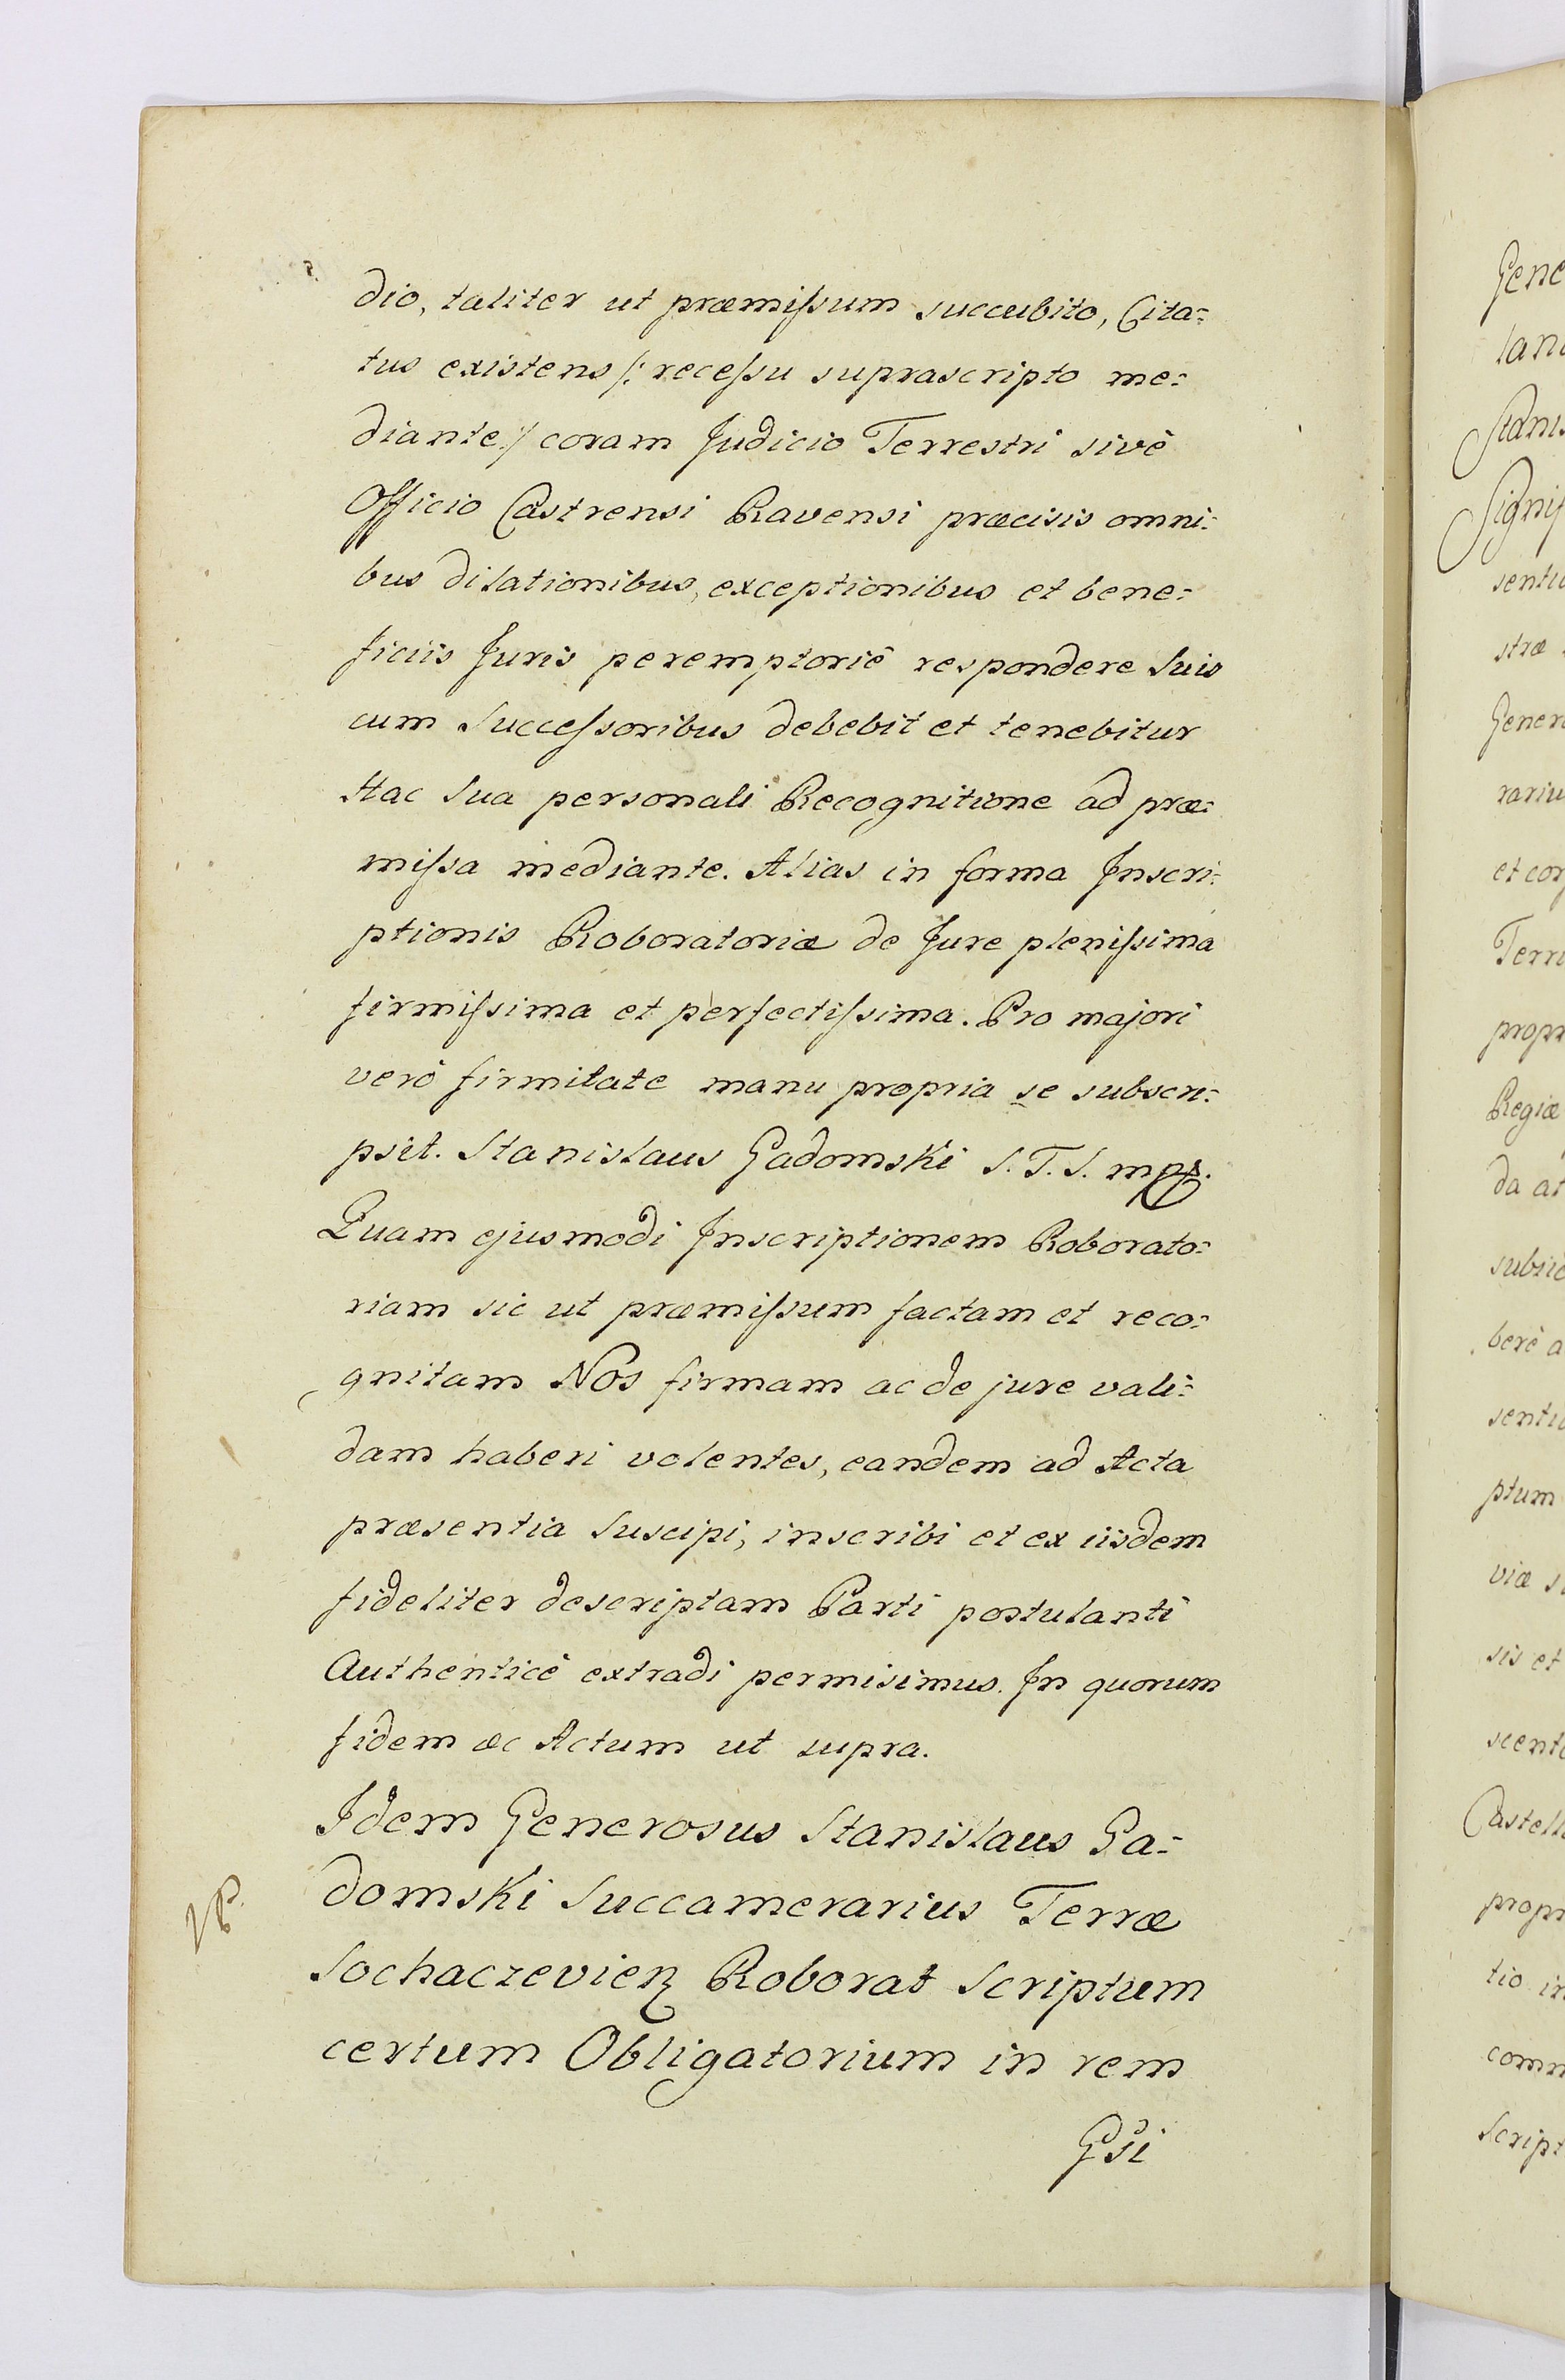 dio, taliter ut præmissum succubito, Cita=
tus existens /: recessu suprascripto me=
diante :/ coram Judicio Terrestri sivè
Officio Castrensi Ravensi præcisis omni=
bus dilationibus, exceptionibus et bene=
ficiis Juris peremptoriè respondere Suis
cum Successoribus debebit et tenebitur
Hac Sua personali Recognitione ad præ=
missa mediante. Alias in forma Inscri=
ptionis Roboratoriæ de Jure plenissima
firmissima et perfectissima. Pro majori
verò firmitate manu propria se subscri=
psit. Stanislaus Gadomski S. T. S. mpp.
Quam ejusmodi Inscriptionem Roborato=
riam sic ut præmissum factam et reco=
gnitam Nos firmam ac de jure vali=
dam haberi volentes, eandem ad Acta
præsentia Suscipi, inscribi et ex iisdem
fideliter descriptam Parti postulanti
Authenticè extradi permisimus. In quorum
fidem ac Actum ut supra.
Idem Generosus Stanislaus Ga=
domski Succamerarius Terræ
Sochaczevien Roborat Scriptum
certum Obligatorium in rem
Gsi
Gene
land
Stanis
Signif
sentiu
stræ
Genero
rariu
et cor
Terr
propr
Regiæ
da at
subsic
berè a
sentiu
ptum
viæ s
sis et
scent
Castell
propr
tio in
comm
Script